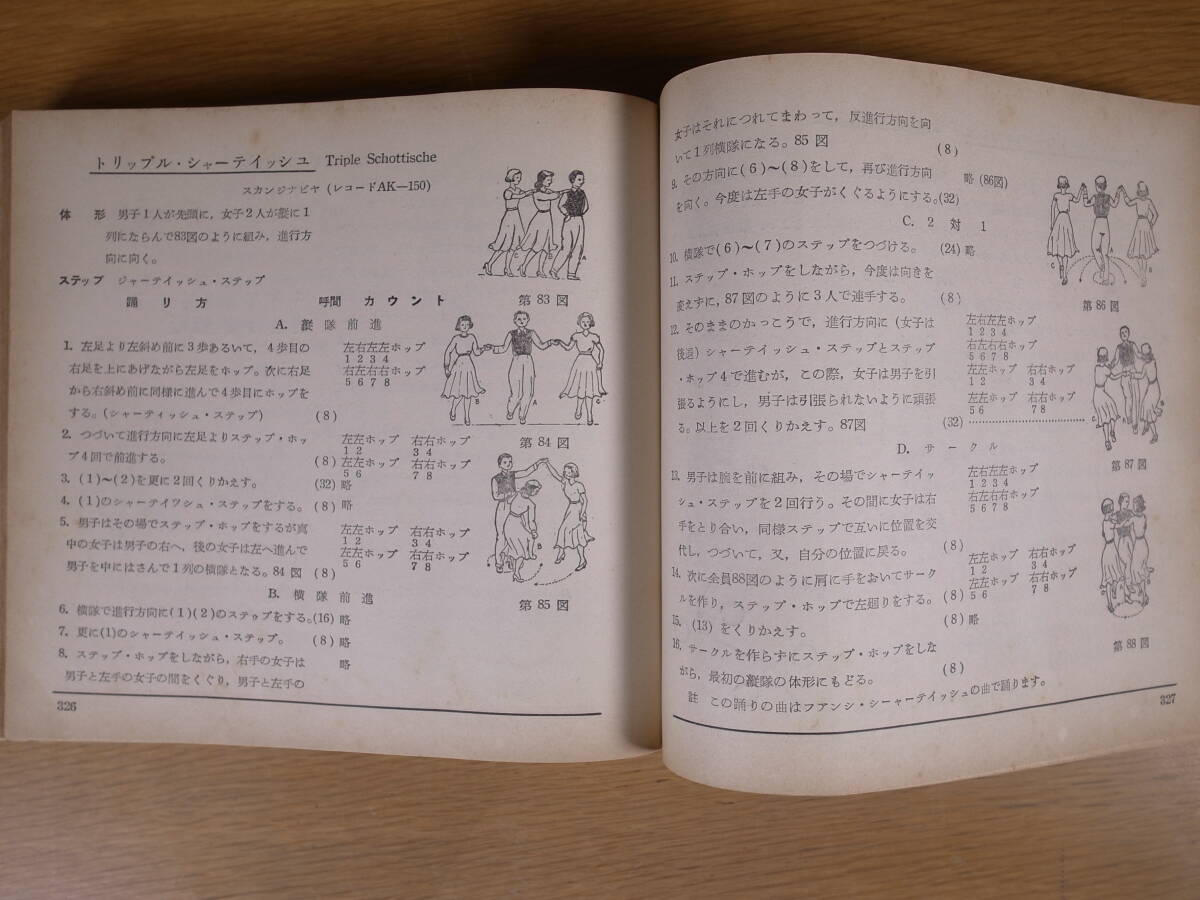 トリップル・シャーテイッシュ Triple Schottische
スカンジナビヤ (レコードAK—150)
体 形 男子1人が先頭に，女子2人が縦に1
列にならんで83図のように組み，進行方
向に向く。
ステップ ジャーテイッシュ・ステップ
踊り方 呼間 カウント
第83図
A. 縦隊前進
1. 左足より左斜め前に3歩あるいて，4歩目の 左右左左ホップ
1 2 3 4
右足を上にあげながら左足をホップ。次に右足 右左右右ホップ
5 6 7 8
から右斜め前に同様に進んで4歩目にホップを
する。(シャーティッシュ・ステップ) (8)
B A C
第84図
2. つづいて進行方向に左足よりステップ・ホッ 左左ホップ 右右ホップ
1 2 3 4
プ4回で前進する。 (8) 左左ホップ 右右ホップ
5 6 7 8
3. (1)〜(2)を更に2回くりかえす。 (32) 略
4. (1)のシャーテイツシュ・ステップをする。 (8) 略
5. 男子はその場でステップ・ホップをするが真 左左ホップ 右右ホップ
1 2 3 4
中の女子は男子の右へ，後の女子は左へ進んで 左左ホップ 右右ホップ
5 6 7 8
男子を中にはさんで1列の横隊となる。84図 (8)
B. 横隊前進
第85図
6. 横隊で進行方向に(1)(2)のステップをする。(16) 略
7. 更に(1)のシャーテイッシュ・ステップ。 (8) 略
8. ステップ・ホップをしながら，右手の女子は 略
男子と左手の女子の間をくぐり，男子と左手の
326
女子はそれにつれてまわって，反進行方向を向
いて1列横隊になる。85図 (8)
9. その方向に(6)〜(8)をして，再び進行方向 略 (86図)
を向く。今度は左手の女子がくぐるようにする。(32)
C. 2対1
10. 横隊で(6)〜(7)のステップをつづける。 (24) 略
11. ステップ・ホップをしながら，今度は向きを
変えずに，87図のように3人で連手する。 (8)
C A B
第86図
12. そのままのかっこうで，進行方向に (女子は 左右左左ホップ
1 2 3 4
後退) シャーテイッシュ・ステップとステップ 右左右右ホップ
5 6 7 8
・ホップ4で進むが，この際，女子は男子を引 左左ホップ 右右ホップ
1 2 3 4
張るようにし，男子は引張られないように頑張 左左ホップ 右右ホップ
5 6 7 8
る。以上を2回くりかえす。87図 (32)
第87図
D. サークル
13. 男子は腕を前に組み，その場でシャーテイッ 左右左左ホップ
1 2 3 4
シュ・ステップを2回行う。その間に女子は右 右左右右ホップ
5 6 7 8
手をとり合い，同様ステップで互いに位置を交
代し，つづいて，又，自分の位置に戻る。 (8)
14. 次に全員88図のように肩に手をおいてサーク 左左ホップ 右右ホップ
1 2 3 4
ルを作り，ステップ・ホップで左廻りをする。 (8) 左左ホップ 右右ホップ
5 6 7 8
15. (13)をくりかえす。 (8) 略
第88図
16. サークルを作らずにステップ・ホップをしな
がら，最初の縦隊の体形にもどる。 (8)
註 この踊りの曲はフアンシ・シーャーテイッシュの曲で踊ります。
327